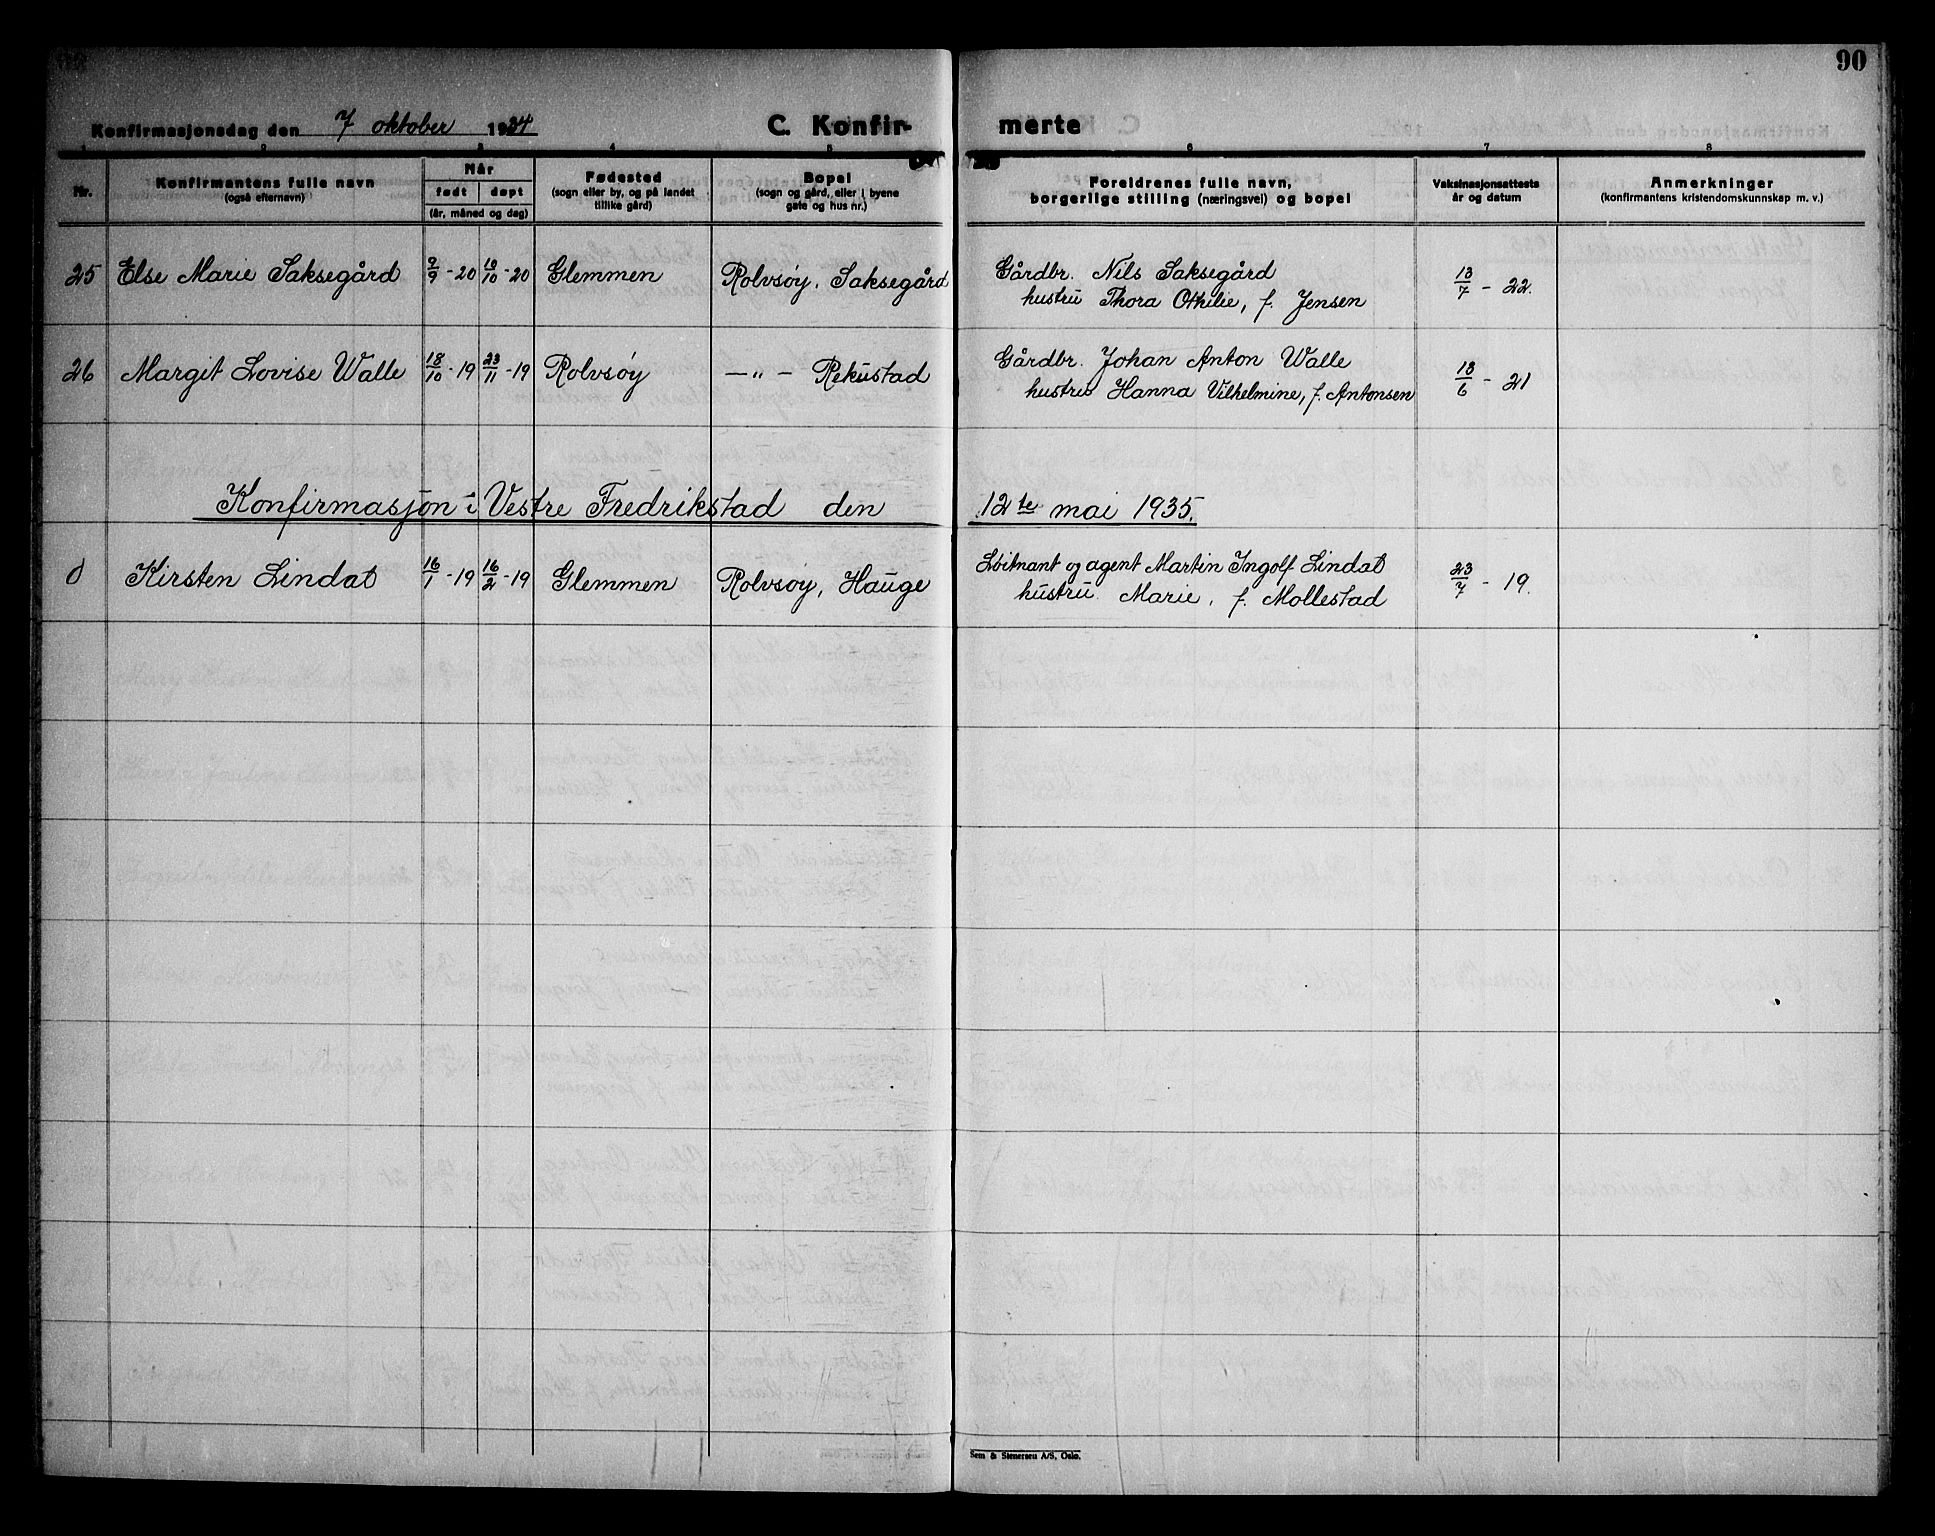 90
Konfirmasjonsdag den 7 oktober 1934
C. Konfir- merte
1 2 3 4 5 6 7 8
Nr.
Konfirmantens fulle navn
(også efternavn)
Når
født døpt
(år, måned og dag)
Fødested
(sogn eller by, og på landet
tillike gård)
Bopel
(sogn og gård, eller i byene
gate og hus nr.)
Foreldrenes fulle navn,
borgerlige stilling (næringsvei) og bopel
Vaksinasjonsattests
år og datum
Anmerkninger
(konfirmantens kristendomskunnskap m. v.)
25 Else Marie Saksegård 9/9 - 20 10/10 - 20 Glemmen Rolvsøy, Saksegård Gårdbr. Nils Saksegård 13/7 - 22.
hustru Thora Othilie, f. Jensen
26 Margit Lovise Walle 18/10 - 19 23/11 - 19 Rolvsøy -"- Rekustad Gårdbr. Johan Anton Walle 13/6 - 21
hustru Hanna Vilhelmine, f. Antonsen
Konfirmasjon i Vestre Fredrikstad den 12te mai 1935.
0 Kirsten Lindat 16/1 - 19 16/2 - 19 Glemmen Rolvsøy, Hauge Løitnant og agent Martin Ingolf Lindat 23/7 - 19.
hustru Marie, f. Mollestad
Sem & Stenersen A/S, Oslo.